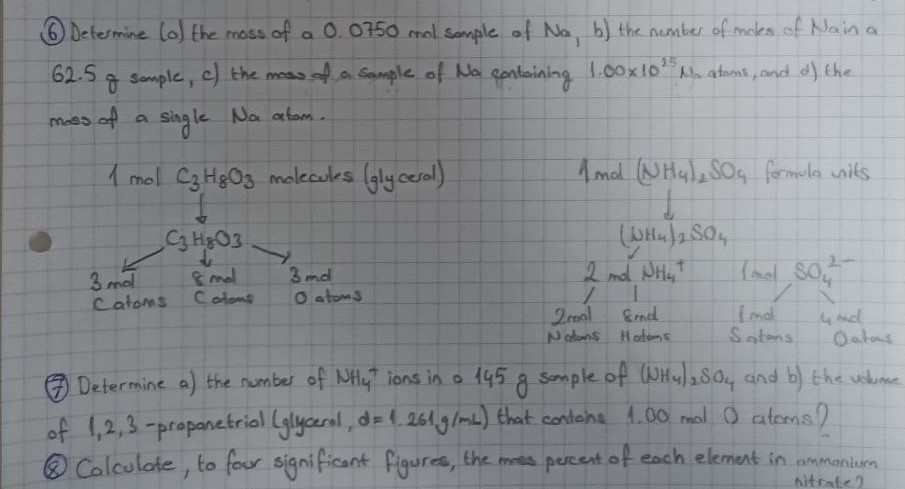 ⑥ Determine (a) the mass of a 0.0750 mol sample of Na, b) the number of moles of Na in a
62.5 g sample, c) the mass of a sample of Na containing 1.00x10²⁵ Na atoms, and d) the
mass of a single Na atom.
1 mol C3H8O3 molecules (glycerol)
C3H8O3
3 mol 8 mol 3 mol
C atoms C atoms O atoms
1 mol (NH4)2SO4 formula units
(NH4)2SO4
2 mol NH4⁺ 1 mol SO4²⁻
2mol 8mol 1mol 4 mol
N atoms H atoms S atoms O atoms
⑦ Determine a) the number of NH4⁺ ions in a 145 g sample of (NH4)2SO4 and b) the volume
of 1,2,3-propanetriol (glycerol, d=1.261g/mL) that contains 1.00 mol O atoms?
⑧ Calculate, to four significant figures, the mass percent of each element in ammonium
nitrate?